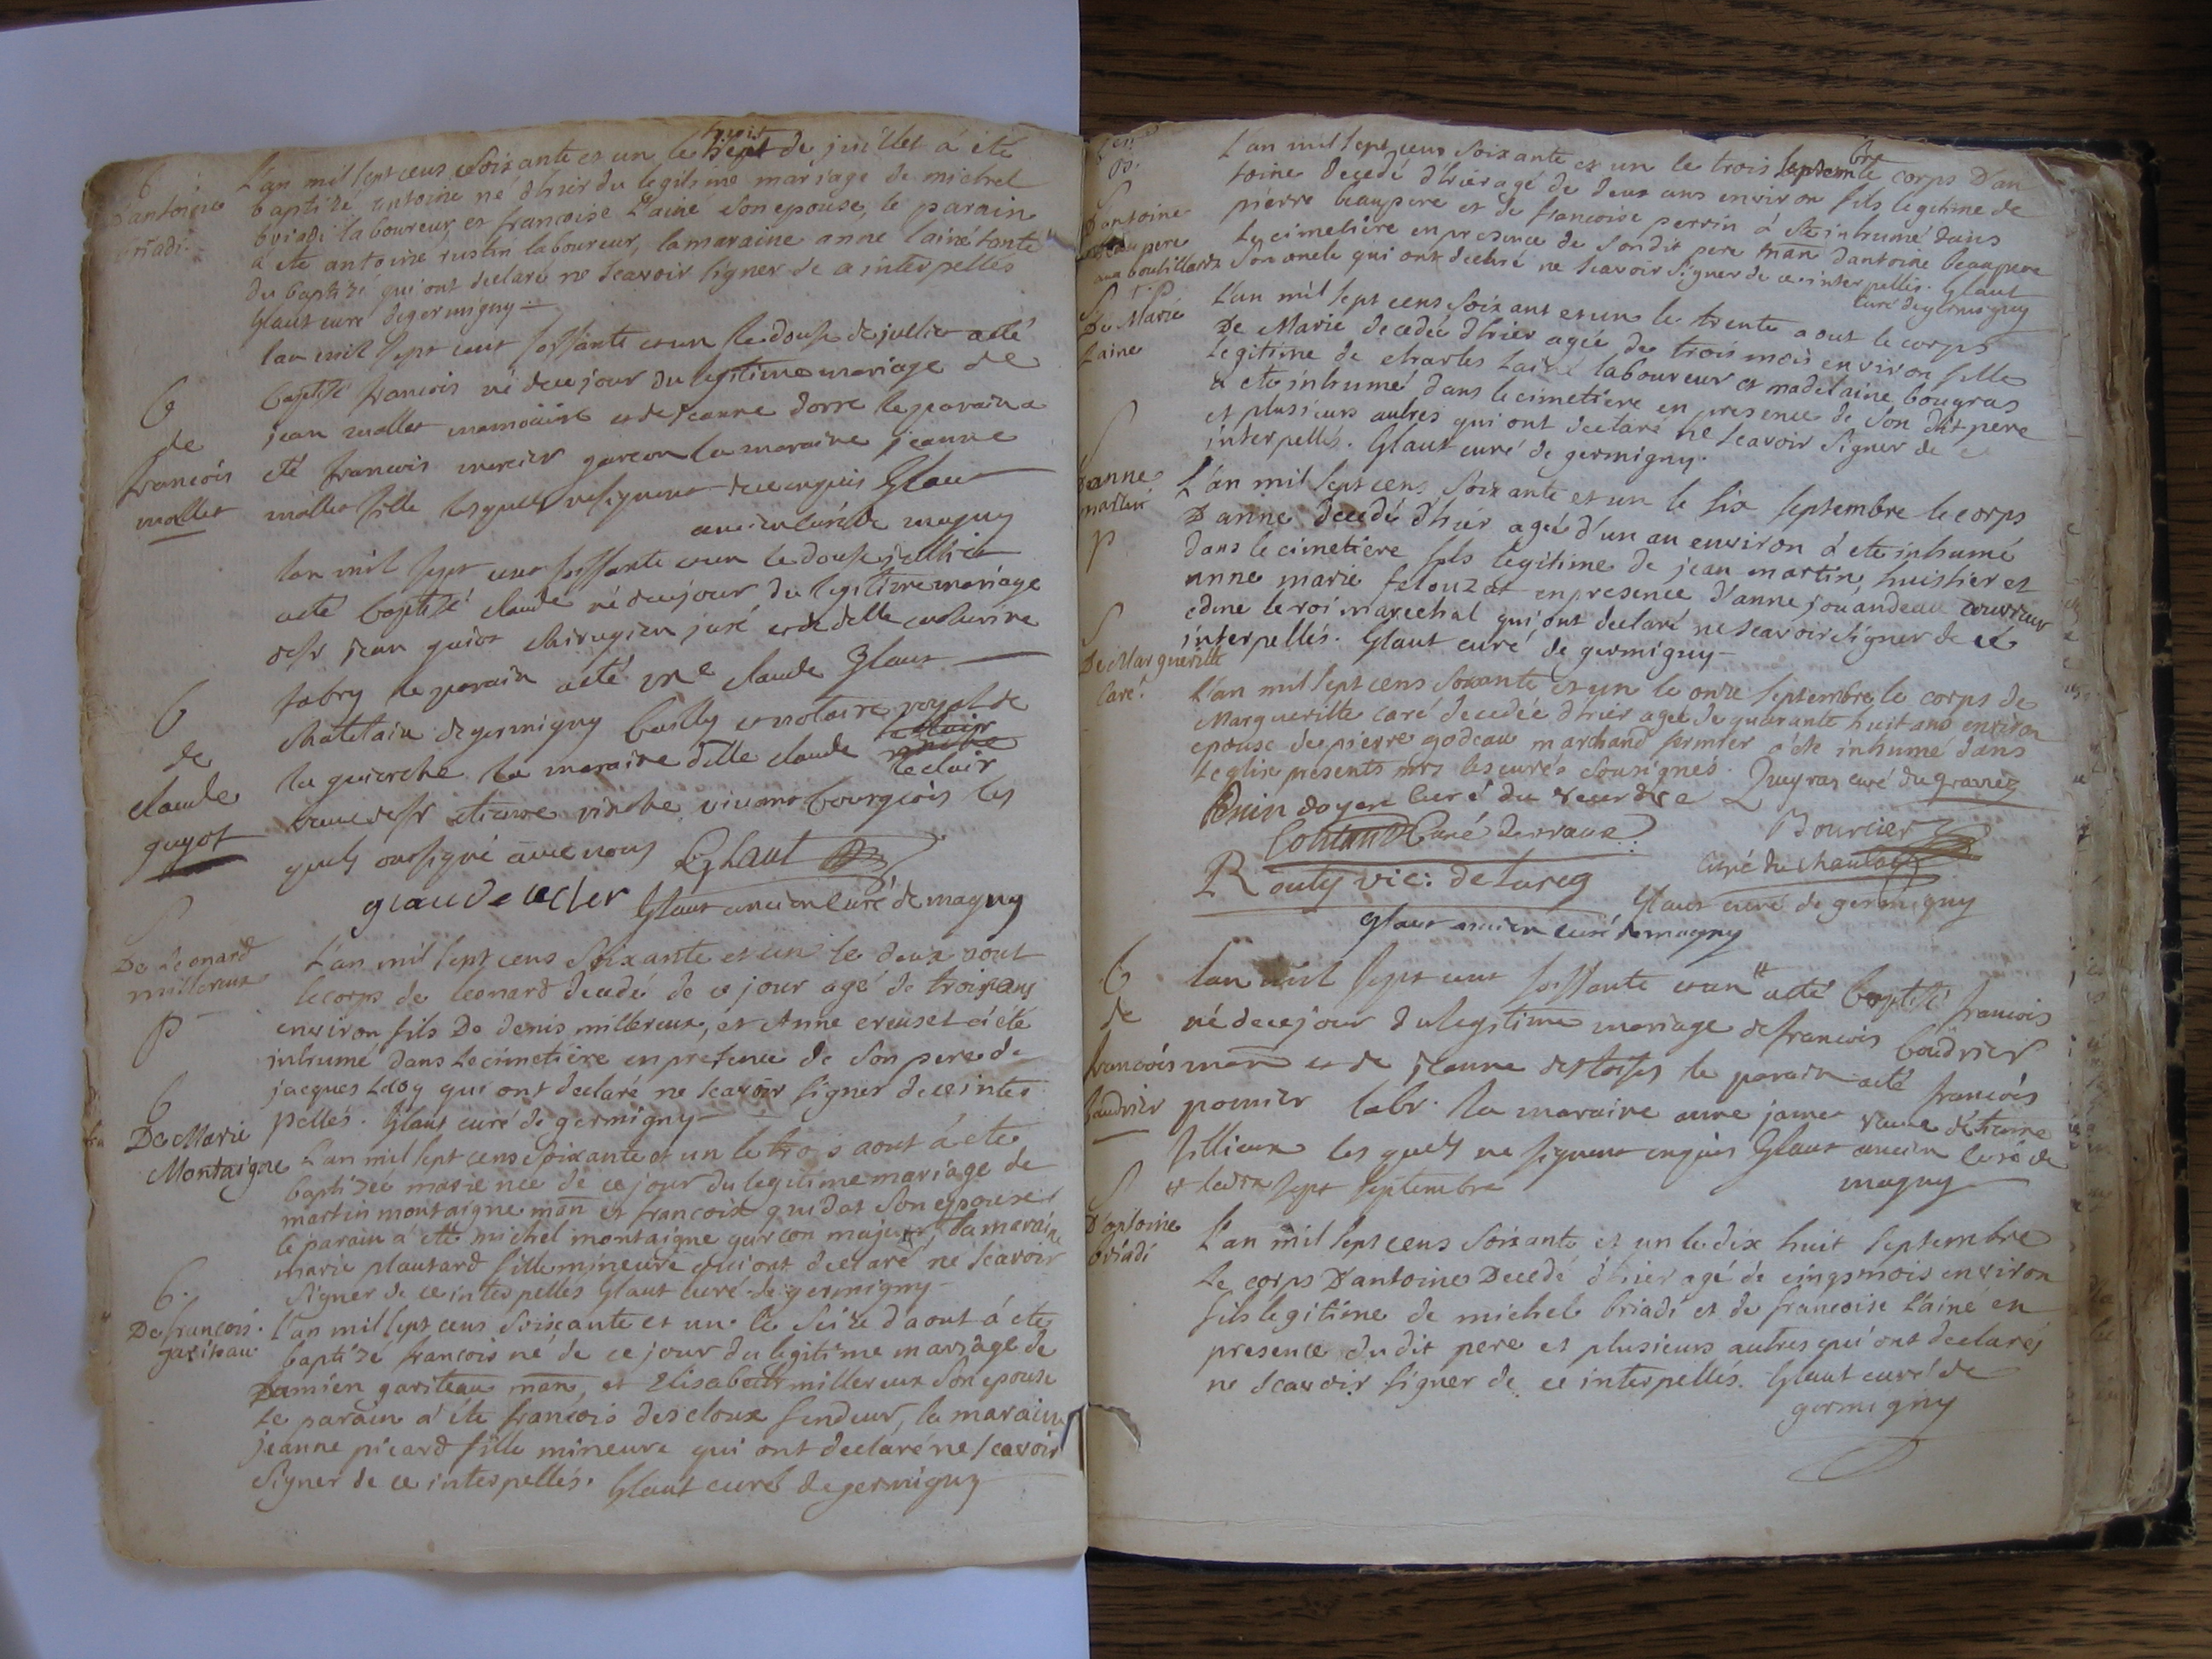 B
d'antoine
briadi
L'an mil sept cens soixante et un le trois de juillet a été
baptizé antoine né d'hier du legitime mariage de michel
briadi laboureur et francoise l'ainé son epouse, le parain
a ete antoine rustin laboureur, la maraine anne lainé tante
du baptizé qui ont declaré ne scavoir signer de ce interpellés
Glaut curé de germigny
B
de
francois
mollet
lan mil sept cent soissante et un le douse de julliet a eté
baptisé francois né de ce jour du legitime mariage de
jean mollet et de jeanne dorre le parain a
eté francois mercier garcon la maraine jeanne
mollet fille lesquels ne signent de ce enquis Glaut
ancien curé de magny
B
de
claude
guyot
lan mil sept cent soissante et un le douse juilliet
a eté baptisé claude né de ce jour du legitime mariage
de sr jean guiot chirugien juré et de delle catherine
fabry le parain a eté mre claude Glaut
chatelain de germigny et notaire royal de
la guierche la maraine delle claude
leclair
veuve de sr etienne vivant bourgeois les
quels ont signé avec nous Glaut
Glaut ancien curé de magny
S
De Leonard
millereux
p
L'an mil sept cens soixante et un le deux aout
le corps de leonard decedé de ce jour agé de trois ans
environ fils De denis millereux, et Anne creuset a eté
inhumé dans le cimetiere en presence de son pere de
jacques Leloy qui ont declaré ne scavoir signer de ce inter
pellés. Glaut curé de germigny
B
De Marie
Montaigne
L'an mil sept cens soixante et un le trois aout a ete
baptizée marie née de ce jour du legitime mariage de
martin montaigne man et francoise quidat son epouse
le parain a eté michel montaigne garcon majeur, la maraine
marie plautard fille mineure qui ont declaré ne scavoir
signer de ce interpellés Glaut curé de germigny
B.
De francois
gariteau
L'an mil sept cens soixante et un le seize d'aout a ete
baptizé francois né de ce jour du legitime mariage de
Damien gariteau man, et Elisabeth millereux son epouse
le parain a été francois descloux fendeur, la maraine
jeanne picard fille mineure qui ont declaré ne scavoir
signer de ce interpellés. Glaut curé de germigny
S
D'antoine
beaupere
aux bouillards
L'an mil sept cens soixante et un le trois septembre le corps D'an
toine decedé d'hier agé de deux ans environ fils legitime de
pierre beaupere et de francoise perrin a été inhumé dans
le cimetiere en presence de son dit pere man d'antoine beaupere
son oncle qui ont declaré ne scavoir signer de ce interpellés. Glaut
curé de germigny
S
De Marie
Laine
L'an mil sept cens soixant et un le trente aout le corps
De Marie decedée d'hier agée de trois mois environ fille
legitime de charles Lainé laboureur et madelaine bougras
a ete inhumé dans le cimetiere en presence de son dit pere
et plusieurs autres qui ont declaré ne scavoir signer de ce
interpellés. Glaut curé de germigny.
S
D'anne
martin
p
L'an mil sept cens soixante et un le six septembre le corps
D'anne decedé d'hier agée d'un an environ a ete inhumé
dans le cimetiere fils legitime de jean martin huissier et
anne marie felouzat en presence d'anne jouandeau
edme le roi marechal qui ont declaré ne scavoir signer de ce
interpellés. Glaut curé de germigny
S
De Margueritte
caré
L'an mil sept cens soixante et un le onze septembre le corps de
Margueritte caré decedée d'hier agée de quarante huit ans environ
epouse de pierre godeau marchand fermier a été inhumé dans
l'eglise présents mrs les curés sousignés. Queyras curé du gravier
doyen curé du
Bourcier
curé du chautay
Routy vic: de
Glaut curé de germigny
Glaut ancien curé de magny
B
de
francois
baudrier
lan mil sept cent soissante et un # a eté baptisé francois
né de ce jour du legitime mariage de francois baudrier
man et de jeanne le parain a eté francois
pomier labr. la maraine anne veuve d'etienne
les quels ne signent enquis Glaut ancien curé de
magny
# le dix sept septembre
S
D'antoine
briadi
L'an mil sept cens soixante et un le dix huit septembre
Le corps D'antoine Decedé d'hier agé de cinqs mois environ
fils legitime de michel briadi et de francoise l'ainé en
presence du dit pere et plusieurs autres qui ont declarés
ne scavoir signer de ce interpellés. Glaut curé de
germigny